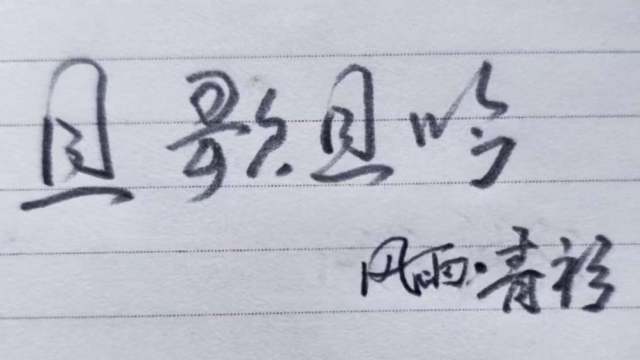 且歌且吟
风雨·青衫